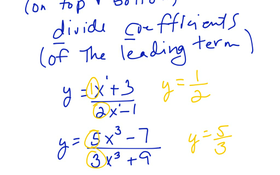 (on top & bottom)
divide coefficients
(of the leading term)
y = 1x¹ + 3 / 2x¹ - 1    y = 1/2
y = 5x³ - 7 / 3x³ + 9    y = 5/3